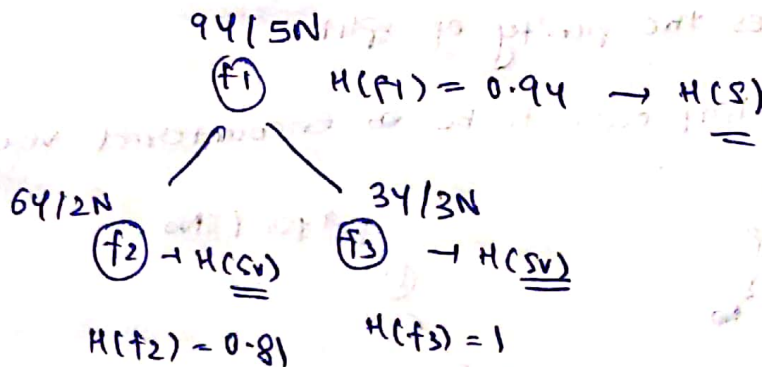 9Y/5N
f1 H(f1) = 0.94 → H(S)
6Y/2N 3Y/3N
f2 → H(Sv) f3 → H(Sv)
H(f2) = 0.81 H(f3) = 1